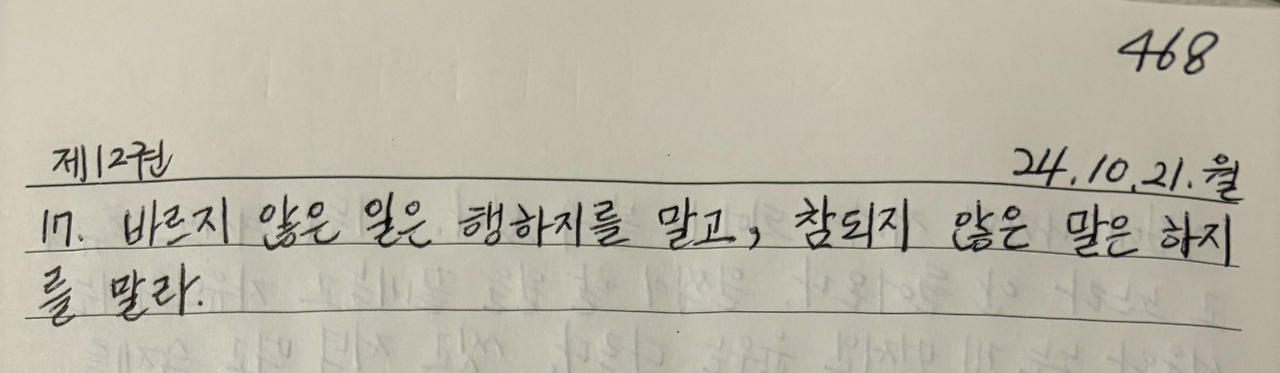 468
제12권 24.10.21.월
17. 바르지 않은 일은 행하지를 말고, 참되지 않은 말은 하지
를 말라.